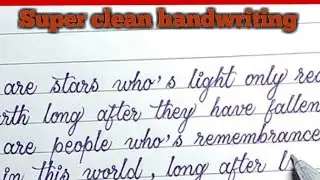 Super clean handwriting
are stars who's light only rea
rth long after they have fallen
are people who's remembrance
in this world, long after li